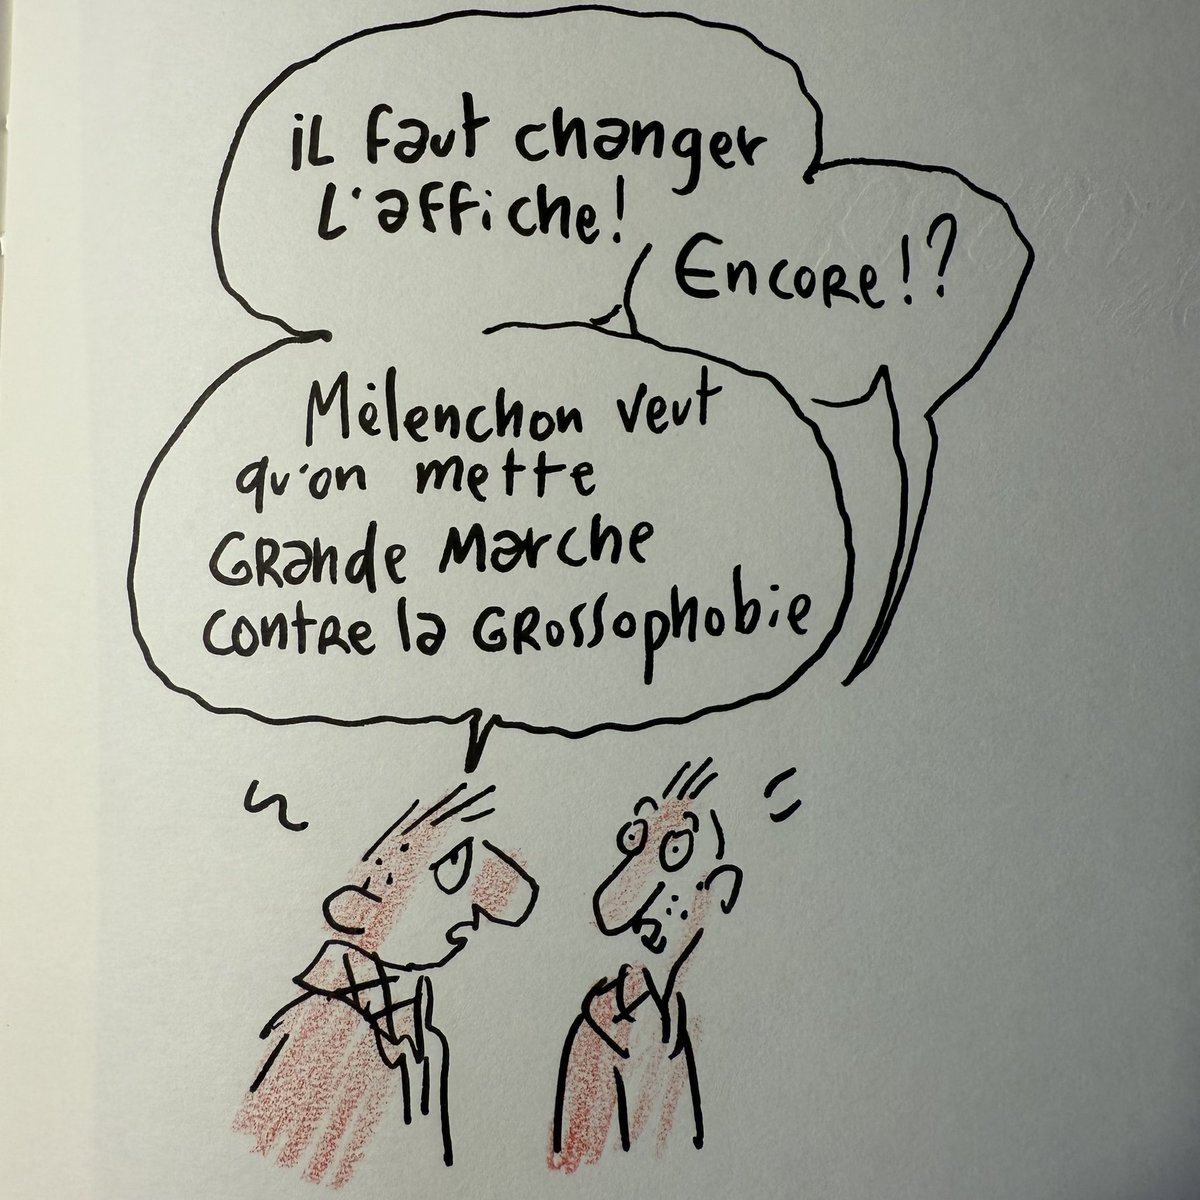 iL faut changer
L'affiche!
Encore!?
Mélenchon veut
qu'on mette
Grande Marche
contre la Grossophobie